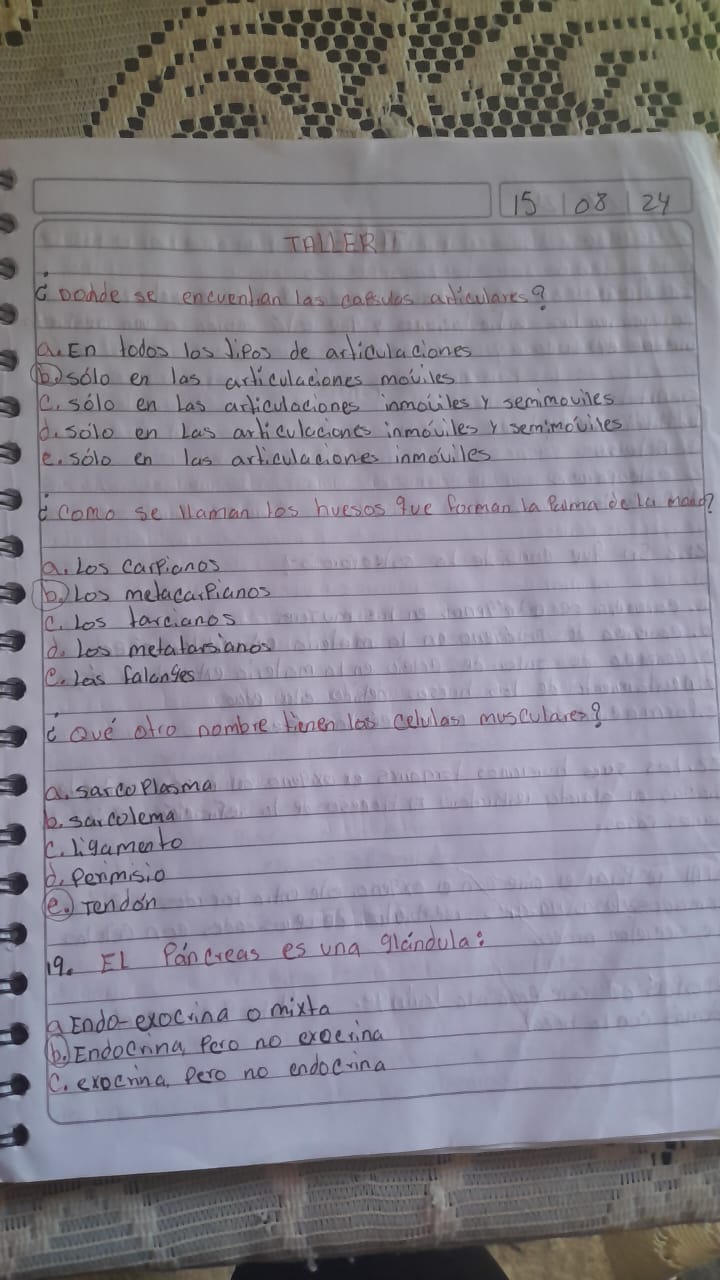 15 | 08 | 24
TALLER
¿ Donde se encuentran las capsulas articulares?
a. En todos los tipos de articulaciones
b. sólo en las articulaciones móviles
c. sólo en Las articulaciones inmóviles y semimoviles
d. sólo en Las articulaciones inmóviles y semimóviles
e. sólo en las articulaciones inmóviles
¿ como se llaman los huesos que forman la Palma de la mano?
a. Los carpianos
b. Los metacarpianos
c. Los tarcianos
d. Los metatarsianos
e. Las falanges
¿ Qué otro nombre tienen las celulas musculares?
a. sarcoplasma
b. sarcolema
c. ligamento
d. Perimisio
e. Tendón
19. EL Páncreas es una glándula:
a Endo-exocrina o mixta
b. Endocrina, Pero no exocrina
c. exocrina, Pero no endocrina